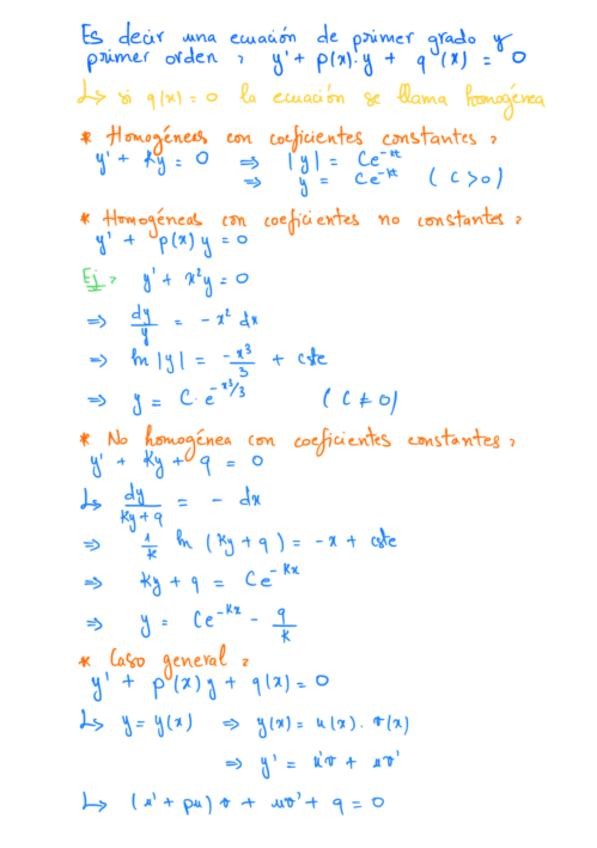 Es decir una ecuación de primer grado y
primer orden : y' + p(x)·y + q(x) = 0
↳ si q(x) = 0 la ecuación se llama homogénea
* Homogéneas con coeficientes constantes :
y' + Ky = 0 ⇒ |y| = Ce^{-kt}
⇒ y = Ce^{-kt} (C>0)
* Homogéneas con coeficientes no constantes :
y' + p(x) y = 0
Ej : y' + x²y = 0
⇒ dy/y = - x² dx
⇒ ln |y| = -x³/3 + cste
⇒ y = C· e^{-x³/3} (C ≠ 0)
* No homogénea con coeficientes constantes :
y' + Ky + q = 0
↳ dy/(Ky+q) = - dx
⇒ 1/K ln (Ky + q) = -x + cste
⇒ Ky + q = Ce^{-Kx}
⇒ y = Ce^{-Kx} - q/K
* Caso general :
y' + p(x) y + q(x) = 0
↳ y = y(x) ⇒ y(x) = u(x) . v(x)
⇒ y' = u'v + uv'
↳ (u' + pu) v + uv' + q = 0